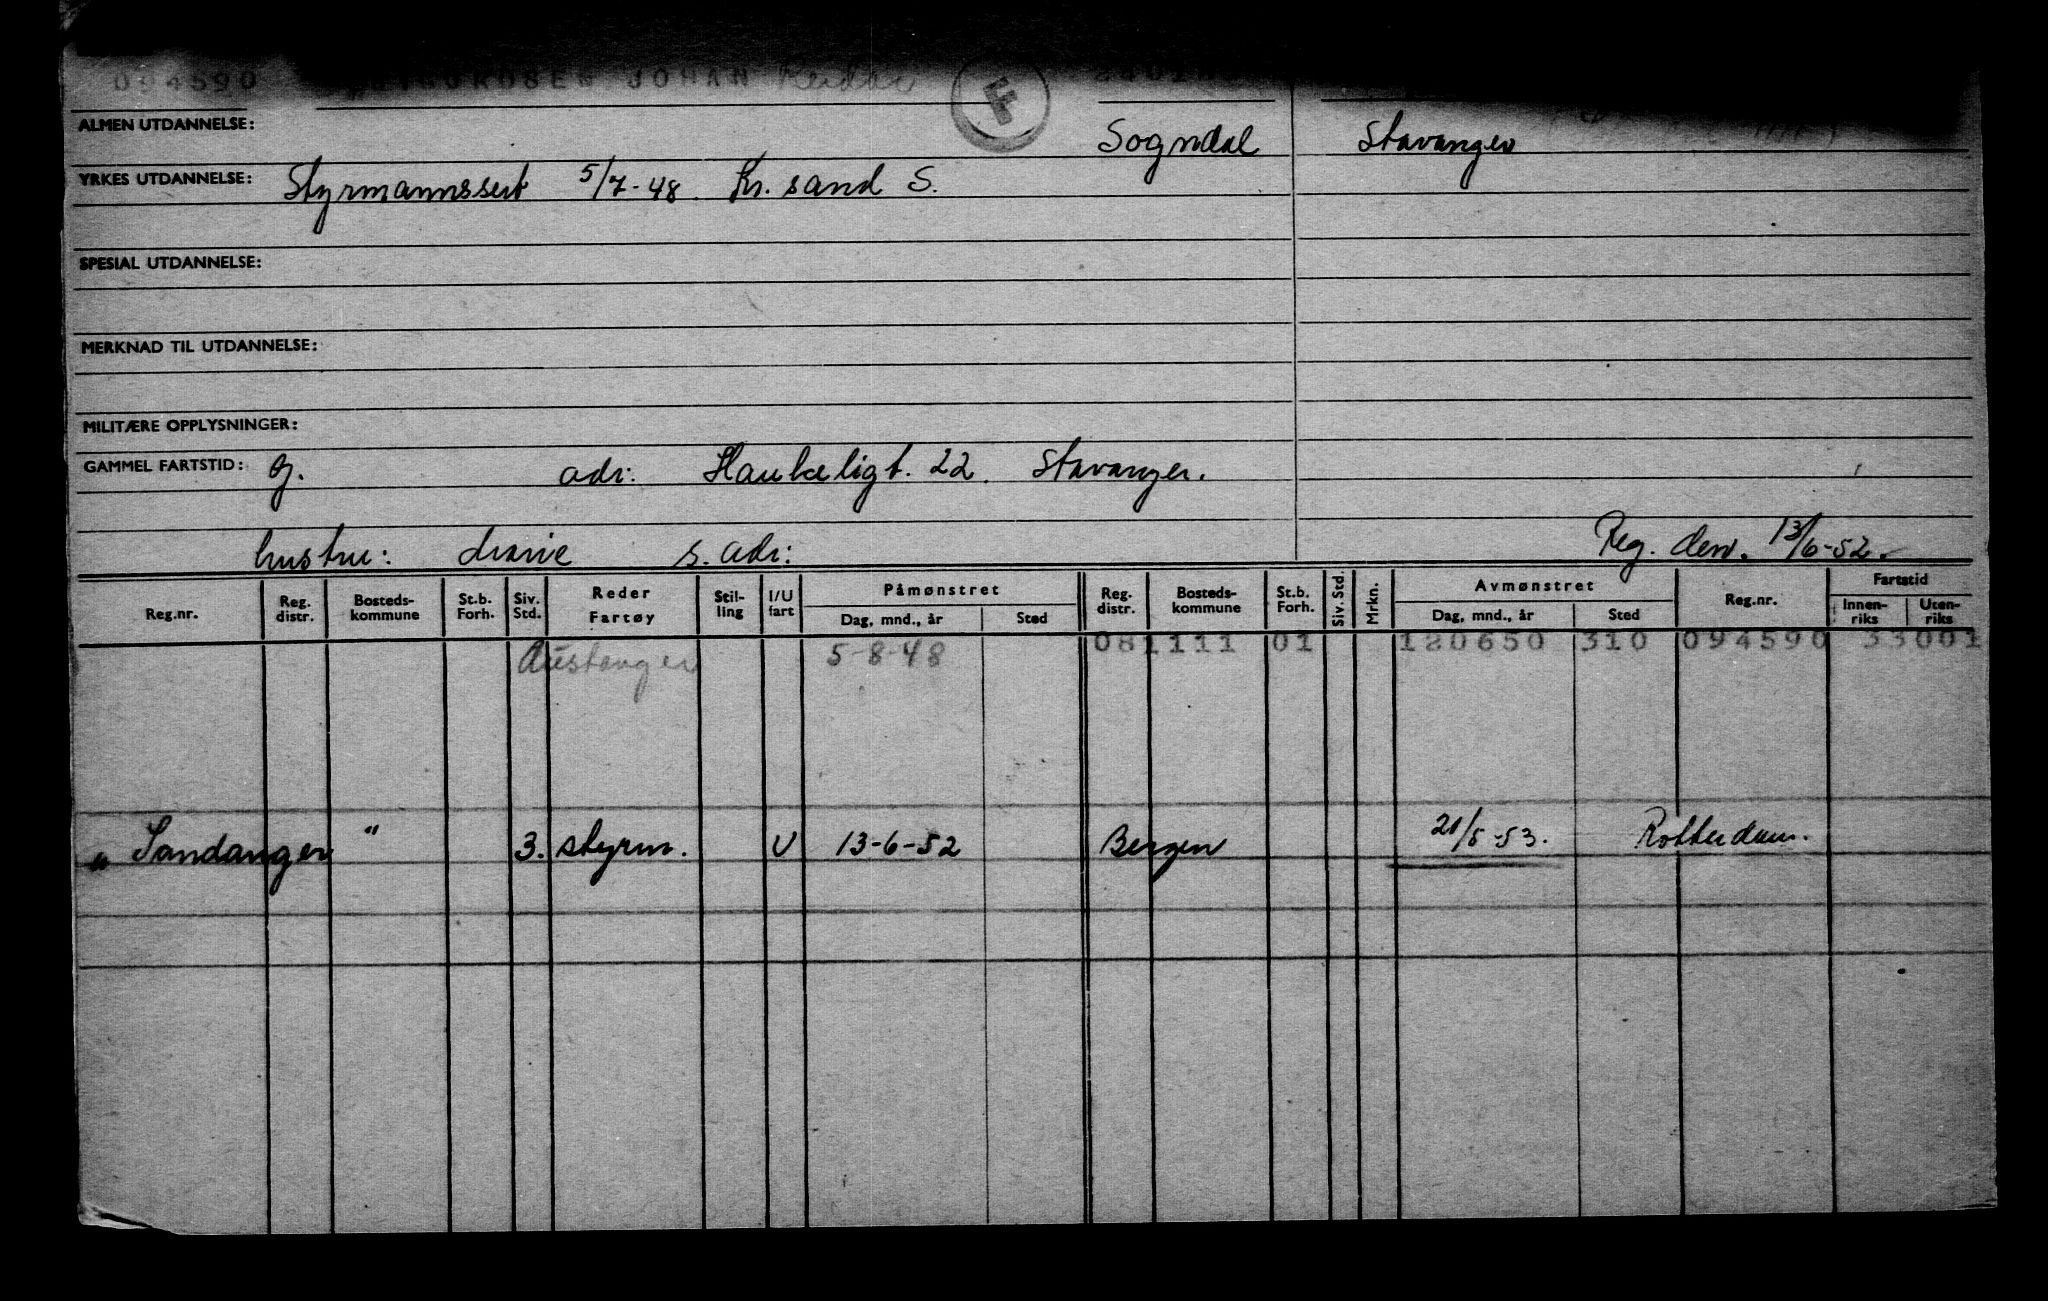 094590 JOHAN Reidar
ALMEN UTDANNELSE: Sogndal Stavanger
YRKES UTDANNELSE: Styrmannssert 5/7-48. Kr. sand S.
SPESIAL UTDANNELSE:
MERKNAD TIL UTDANNELSE:
MILITÆRE OPPLYSNINGER:
GAMMEL FARTSTID: G. adr: Haukeligt. 22. Stavanger.
hustru: Marie s. adr: Reg. den. 13/6-52.
Reg.nr. Reg. distr. Bosteds-kommune St.b. Forh. Siv. Std. Reder Fartøy Stil-ling I/U fart Påmønstret Dag, mnd., år Sted Reg. distr. Bosteds-kommune St.b. Forh. Siv. Std. Mrkn. Avmønstret Dag, mnd., år Sted Reg.nr. Fartstid Innen-riks Uten-riks
Austanger 5-8-48 081111 01 120650 310 094590 33001
" Sandanger " 3. styrm. U 13-6-52 Bergen 21/5-53. Rotterdam.